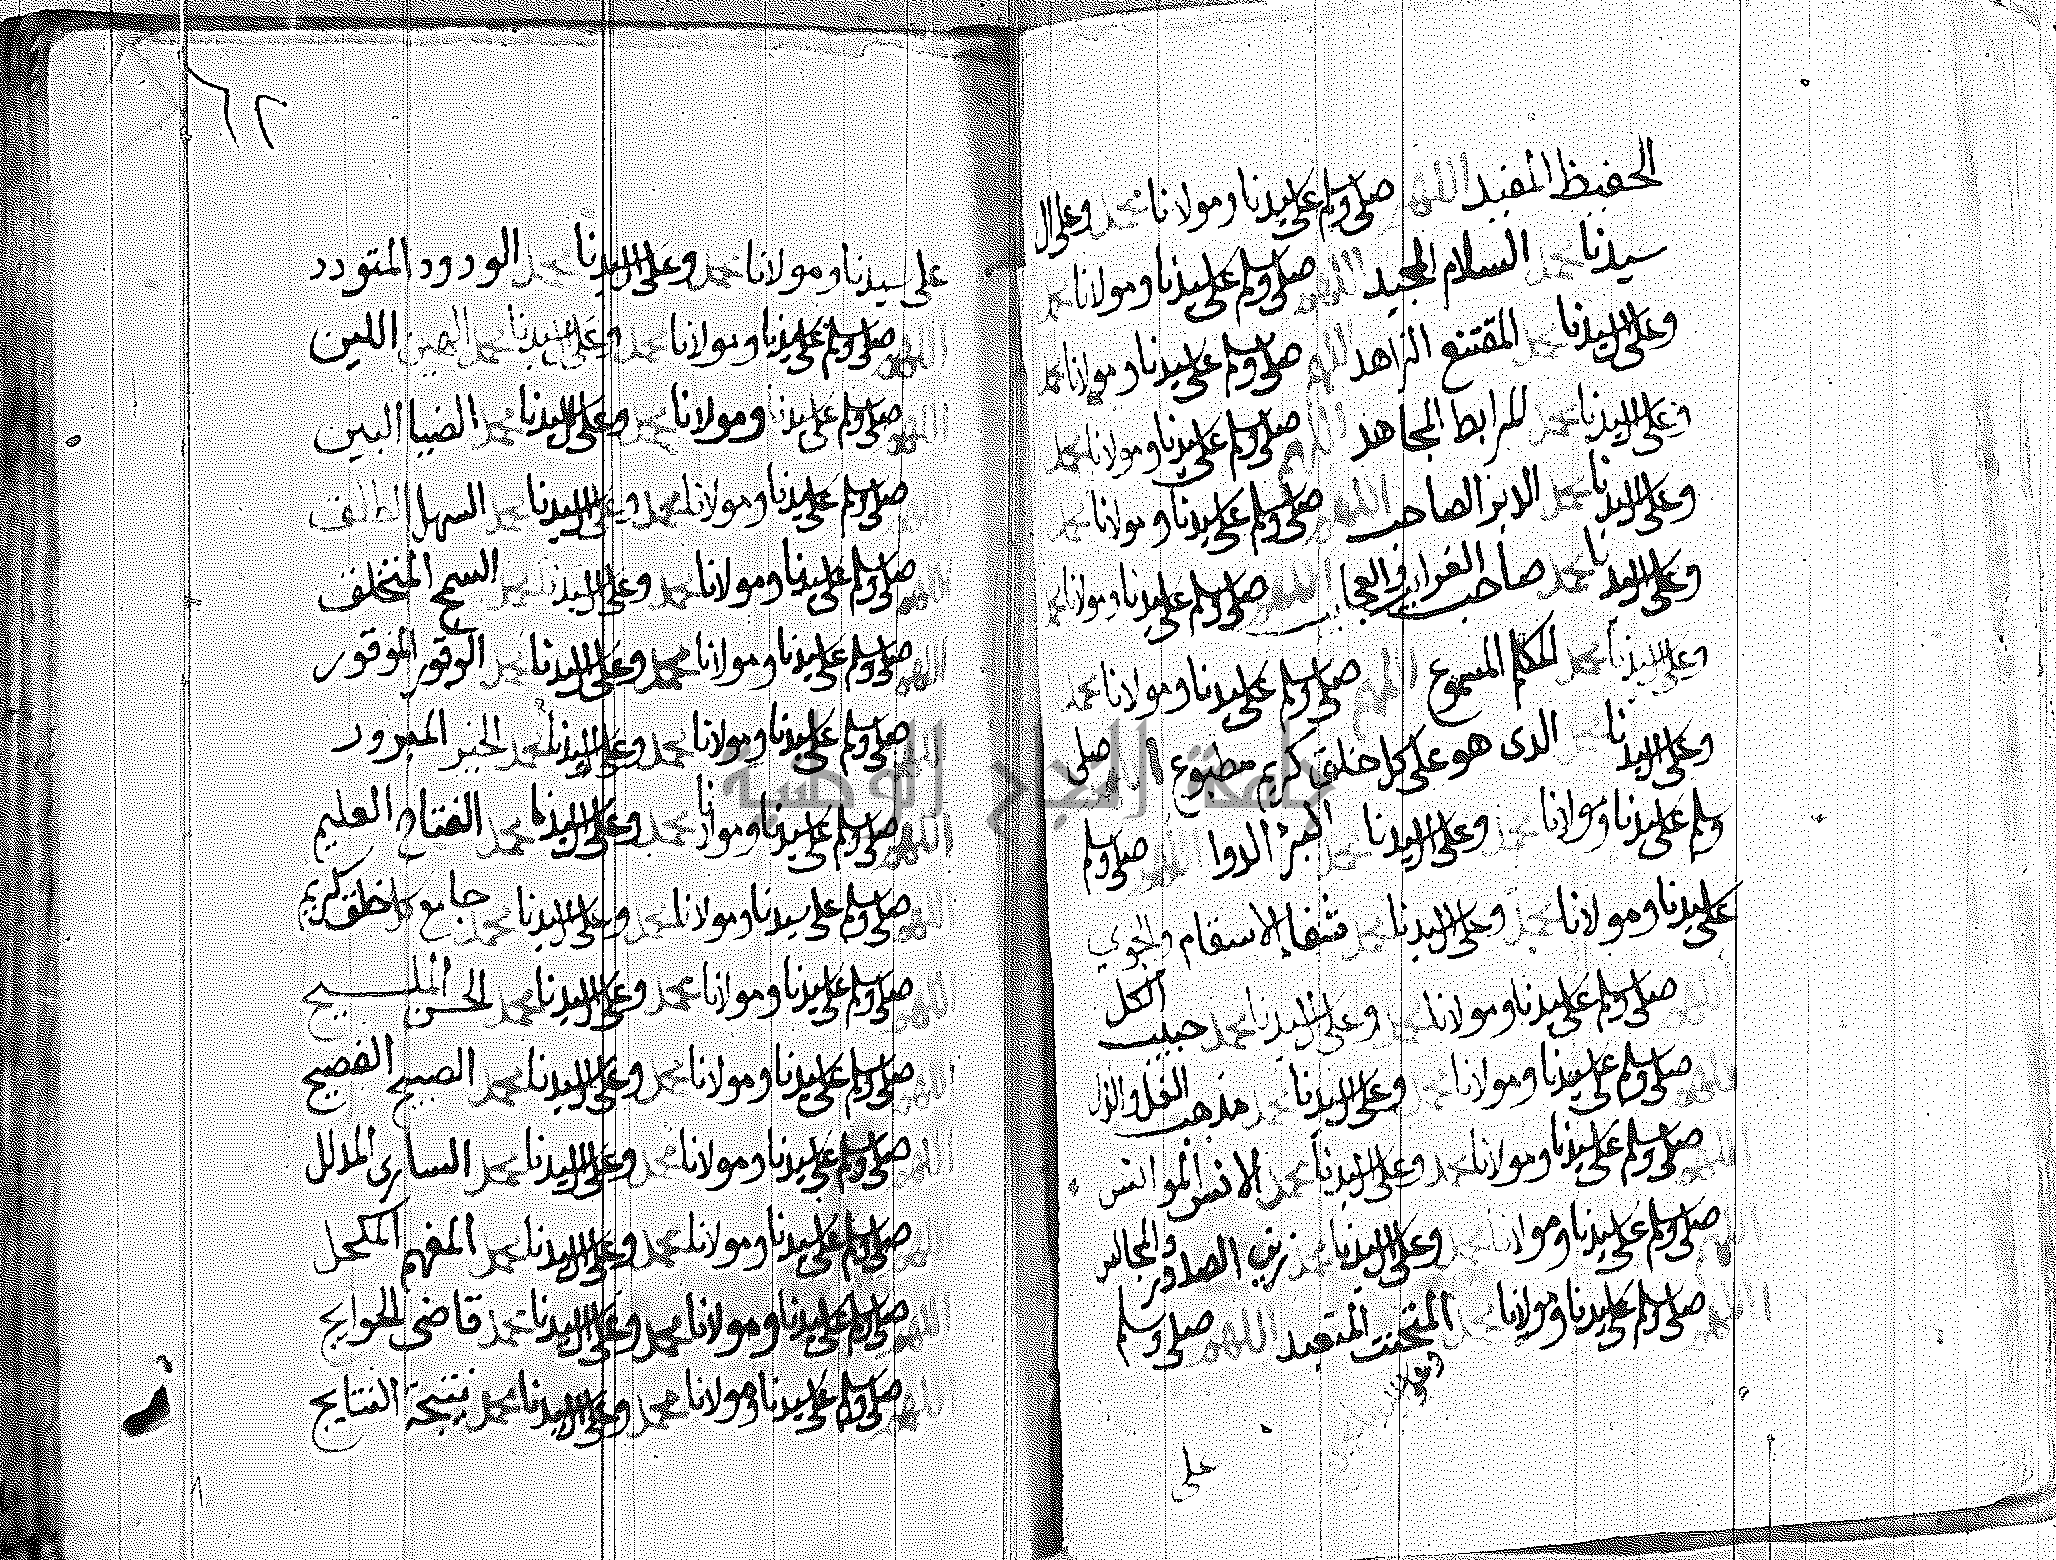 الحفيظ المفيد اللهم صلي وسلم على سيدنا ومولانا محمد وعلى ال
سيدنا محمد السلام المجيد اللهم صلي وسلم على سيدنا ومولانا محمد
وعلى ال سيدنا محمد المقتنع الزاهد اللهم صلي وسلم على سيدنا ومولانا محمد
وعلى ال سيدنا محمد المرابط المجاهد اللهم صلي وسلم على سيدنا ومولانا محمد
وعلى ال سيدنا محمد الصاحب اللهم صلي وسلم على سيدنا ومولانا محمد
وعلى ال سيدنا محمد صاحب الغرايب والعجايب اللهم صلي وسلم على سيدنا ومولانا محمد
وعلى ال سيدنا محمد المكلم المسموع اللهم صلي وسلم على سيدنا ومولانا محمد
وعلى ال سيدنا محمد الذى هو على كل خلق كريم مطبوع اللهم صلي
وسلم على سيدنا ومولانا محمد وعلى ال سيدنا محمد الدوا اللهم صلي وسلم
على سيدنا ومولانا محمد وعلى ال سيدنا محمد شفاء الاسقام والجوي
اللهم صلي وسلم على سيدنا ومولانا محمد وعلى ال سيدنا محمد حبيب الكل
اللهم صلي وسلم على سيدنا ومولانا محمد وعلى ال سيدنا محمد مذهب الغل والذل
اللهم صلي وسلم على سيدنا ومولانا محمد وعلى ال سيدنا محمد الانس الموانس
اللهم صلي وسلم على سيدنا ومولانا محمد وعلى ال سيدنا محمد زين الصدور والمجالس
اللهم صلي وسلم على سيدنا ومولانا محمد المتحنث المتعبد اللهم صلي وسلم
على
٦٢
على سيدنا ومولانا محمد وعلى ال سيدنا محمد الودود المتودد
اللهم صلي وسلم على سيدنا ومولانا محمد وعلى ال سيدنا محمد الهين اللين
اللهم صلي وسلم على سيدنا ومولانا محمد وعلى ال سيدنا محمد الضيا البين
اللهم صلي وسلم على سيدنا ومولانا محمد وعلى ال سيدنا محمد السهل الطلق
اللهم صلي وسلم على سيدنا ومولانا محمد وعلى ال سيدنا محمد السمح المتخلق
اللهم صلي وسلم على سيدنا ومولانا محمد وعلى ال سيدنا محمد الوقور الموقور
اللهم صلي وسلم على سيدنا ومولانا محمد وعلى ال سيدنا محمد الخير المبرور
اللهم صلي وسلم على سيدنا ومولانا محمد وعلى ال سيدنا محمد الفتاح العليم
اللهم صلي وسلم على سيدنا ومولانا محمد وعلى ال سيدنا محمد جامع كل خلق كريم
اللهم صلي وسلم على سيدنا ومولانا محمد وعلى ال سيدنا محمد الحسن المليح
اللهم صلي وسلم على سيدنا ومولانا محمد وعلى ال سيدنا محمد الصبيح الفصيح
اللهم صلي وسلم على سيدنا ومولانا محمد وعلى ال سيدنا محمد السارى المدلل
اللهم صلي وسلم على سيدنا ومولانا محمد وعلى ال سيدنا محمد المفهم المكحل
اللهم صلي وسلم على سيدنا ومولانا محمد وعلى ال سيدنا محمد قاضى الحوايج
اللهم صلي وسلم على سيدنا ومولانا محمد وعلى ال سيدنا محمد نتيجة النتايج
جامعة النجاح الوطنية